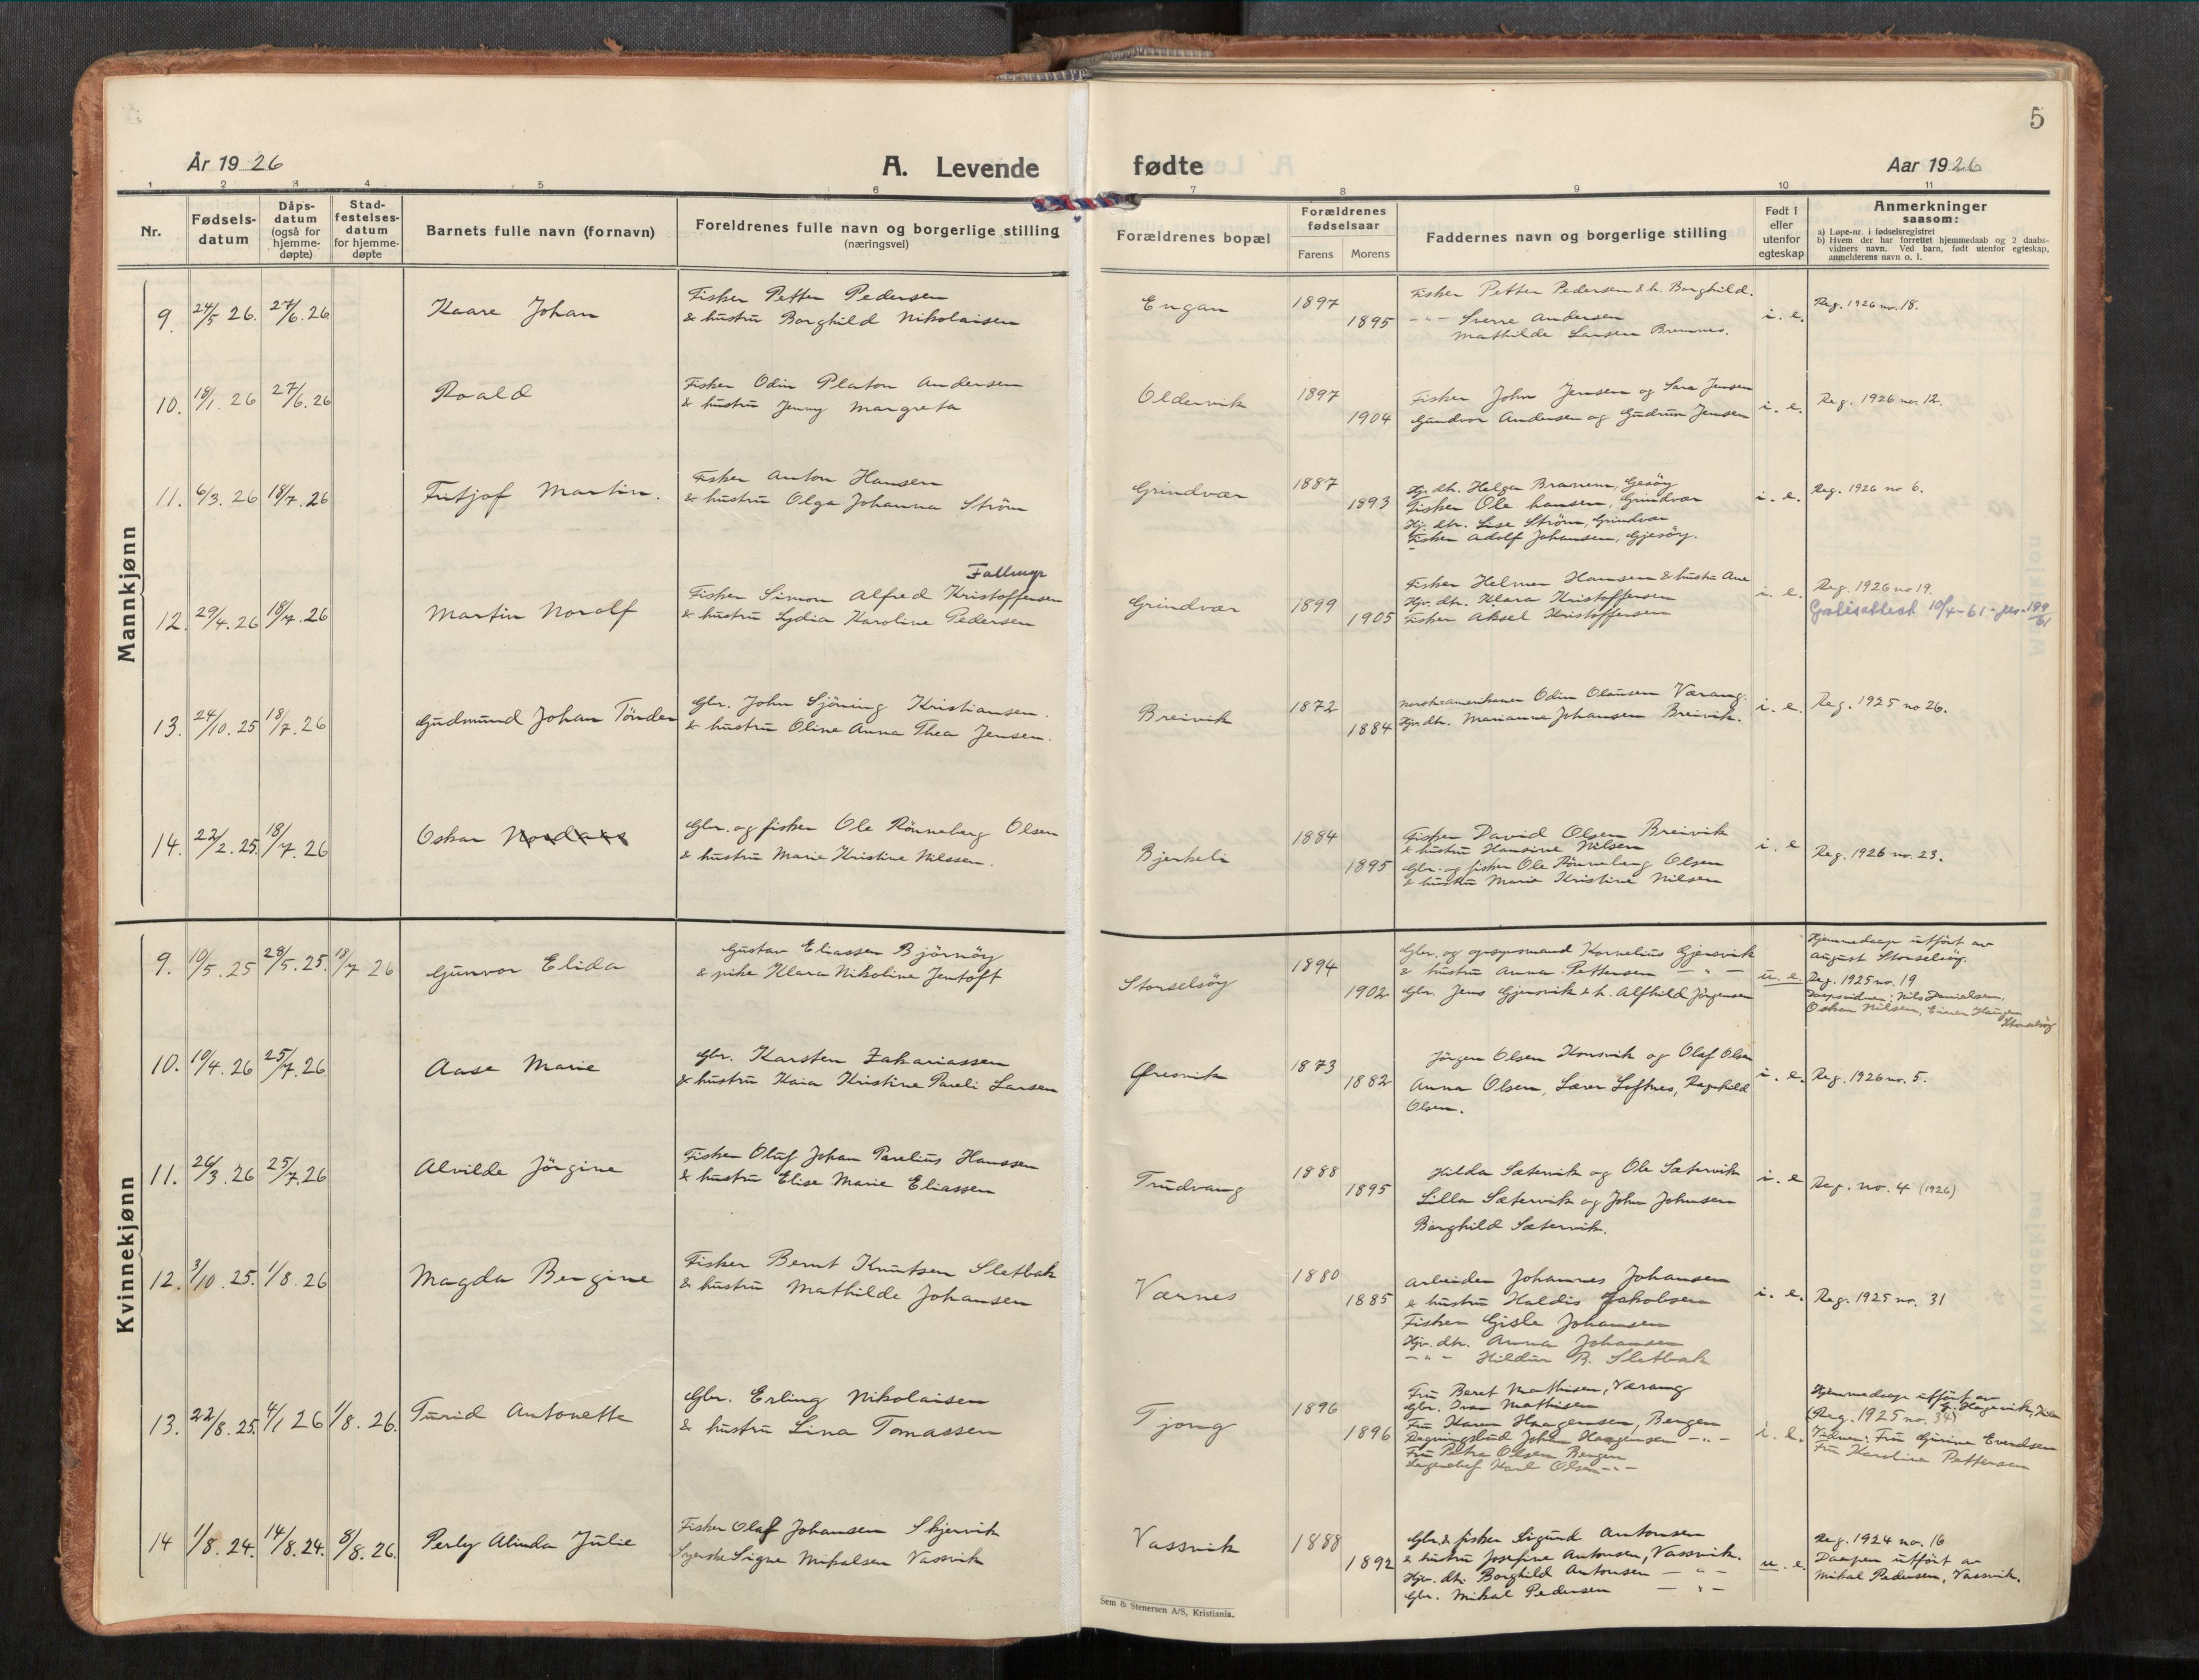 5
År 1926
A. Levende fødte
Aar 1926
1 2 3 4 5 6 7 8 9 10 11
Nr.
Fødsels-
datum
Dåps-
datum
(også for
hjemme-
døpte)
Stad-
festelses-
datum
for hjemme-
døpte
Barnets fulle navn (fornavn)
Foreldrenes fulle navn og borgerlige stilling
(næringsvei)
Forældrenes bopæl
Forældrenes
fødselsaar
Farens Morens
Faddernes navn og borgerlige stilling
Født i
eller
utenfor
egteskap
Anmerkninger
saasom:
a) Løpe-nr. i fødselsregistret
b) Hvem der har forrettet hjemmedaab og 2 daabs-
vidners navn. Ved barn, født utenfor egteskap,
anmelderens navn o. l.
Mannkjønn
9. 24/5 26. 27/6.26 Kaare Johan
Fisker Petter Pedersen
& hustru Borghild Nikolaisen
Engan 1897 1895
Fisker Petter Pedersen & h. Borghild.
-"- Sverre Andersen
Mathilde Larsen Bremnes.
i. e. Reg. 1926 no. 18.
10. 18/1. 26 27/6.26 Roald
Fisker Odin Platon Andersen
& hustru Jenny Margreta
Oldervik 1897 1904
Fisker John Jensen og Sara Jensen
Gundvor Andersen og Gudrun Jensen
i. e. Reg. 1926 no. 12.
11. 6/3. 26 18/7.26 Fritjof Martin.
Fisker Anton Hansen
& hustru Olga Johanna Ström
Grindvær 1887 1893
Hjv. dtr. Helga Brannen, Gesöy
Fisker Ole Hansen, Grindvær
Hj. dtr. Lise Ström, Grindvær
Fisker Adolf Johansen, Gjesöy.
i. e. Reg. 1926 no 6.
12. 29/4. 26 18/7.26 Martin Norolf
Falling
Fisker Simon Alfred Kristoffersen
& hustru Lydia Karoline Pedersen
Grindvær 1899 1905
Fisker Helmer Hansen & hustru Ane
Hjv. dtr. Klara Kristoffersen
Fisker Aksel Kristoffersen
i. e. Reg. 1926 no 19.
Gratisattest 10/4-61- jnr. 199/61
13. 24/10. 25 18/7.26 Gudmund Johan Tönder
Gbr. John Sjöning Kristiansen.
& hustru Oline Anna Thea Jensen.
Breivik 1872 1884
Norskamerikaner Odin Olausen Værang.
Hjv. dtr. Marianne Johansen Breivik.
i. e. Reg. 1925 no 26.
14. 22/2. 25. 18/7.26 Oskar Nordaas
Gbr. og fisker Ole Rönneberg Olsen
& hustru Marie Kristine Nilssen.
Bjerkeli 1884 1895
Fisker David Olsen Breivik
& hustru Hansine Nilsen
Gbr. og fisker Ole Rönneberg Olsen
& hustru Marie Kristine Nilsen
i. e Reg. 1926 no. 23.
Kvinnekjønn
9. 10/5. 25 28/5.25. 18/7 26 Gunvor Elida
Gustav Eliassen Björnöy
& pike Klara Nikoline Jentoft
Storselsöy 1894 1902
Gbr. og opsynsmand Kornelius Gjersvik
& hustru Anna Pettersen -"-
Gbr. Jens Gjersvik & h. Alfhild Jörgensen
u. e
Hjemmedaap utfört av
August Storselsöy.
Reg. 1925 no. 19
Daapsvidner: Nils Danielsen,
Oskar Nilsen, Einar Haugen
Storselsöy
10. 10/4. 26 25/7.26 Aase Marie
Gbr. Karsten Zakariassen
& hustru Kaia Kristine Pareli Larsen
Øresvik 1873 1882
Jörgen Olsen Konsvik og Olaf Olsen
Anna Olsen, Laver Loftnes, Ragnhild
Olsen.
i. e. Reg. 1926 no. 5.
11. 26/3. 26 25/7.26 Alvilde Jörgine
Fisker Oluf Johan Parelius Hanssen
& hustru Elise Marie Eliassen
Trudvang 1888 1895
Hilda Sætervik og Ole Sætervik
Lilla Sætervik og John Johnsen
Borghild Sætervik.
i. e Reg. no. 4 (1926)
12. 3/10. 25. 1/8. 26 Magda Bergine
Fisker Bernt Knutsen Sletbak
& hustru Mathilde Johansen
Værnes 1880 1885
Arbeider Johannes Johansen
& hustru Haldis Jakobsen
Fisker Gisle Johansen
Hjv. dtr. Anna Johansen
-"- Hildur B. Sletbak
i. e. Reg. 1925 no. 31
13. 22/8. 25. 4/1 26 1/8. 26. Turid Antonette
Gbr. Erling Nikolaisen
& hustru Lina Tomassen
Tjong 1896 1896
Fru Beret Mathisen, Værang
Gbr. Ivar Mathisen
Fru Karen Haagensen, Bergen
Regningsbud John Haagensen -"-
Fru Petra Olsen Bergen
Lagerchef Karl Olsen -"-
i. e.
Hjemmedaap utfört av
J. Hagervik, Kila
(Reg. 1925 no. 34)
Vidner: Fru Gurine Evendsen
Fru Karoline Pettersen
14 1/8. 24. 14/8. 24. 8/8. 26. Perly Alinda Julie
Fisker Olaf Johansen Skjervik
Syerske Signe Mikalsen Vassvik
Vassvik 1888 1892
Gbr. & fisker Sigurd Antonsen
& hustru Josefine Antonsen, Vassvik.
Hjv. dtr. Borghild Antonsen -"-
Gbr. Mikal Pedersen -"-
u. e.
Reg. 1924 no. 16
Daapen utfört av
Mikal Pedersen, Vassvik.
Sem & Stenersen A/S, Kristiania.